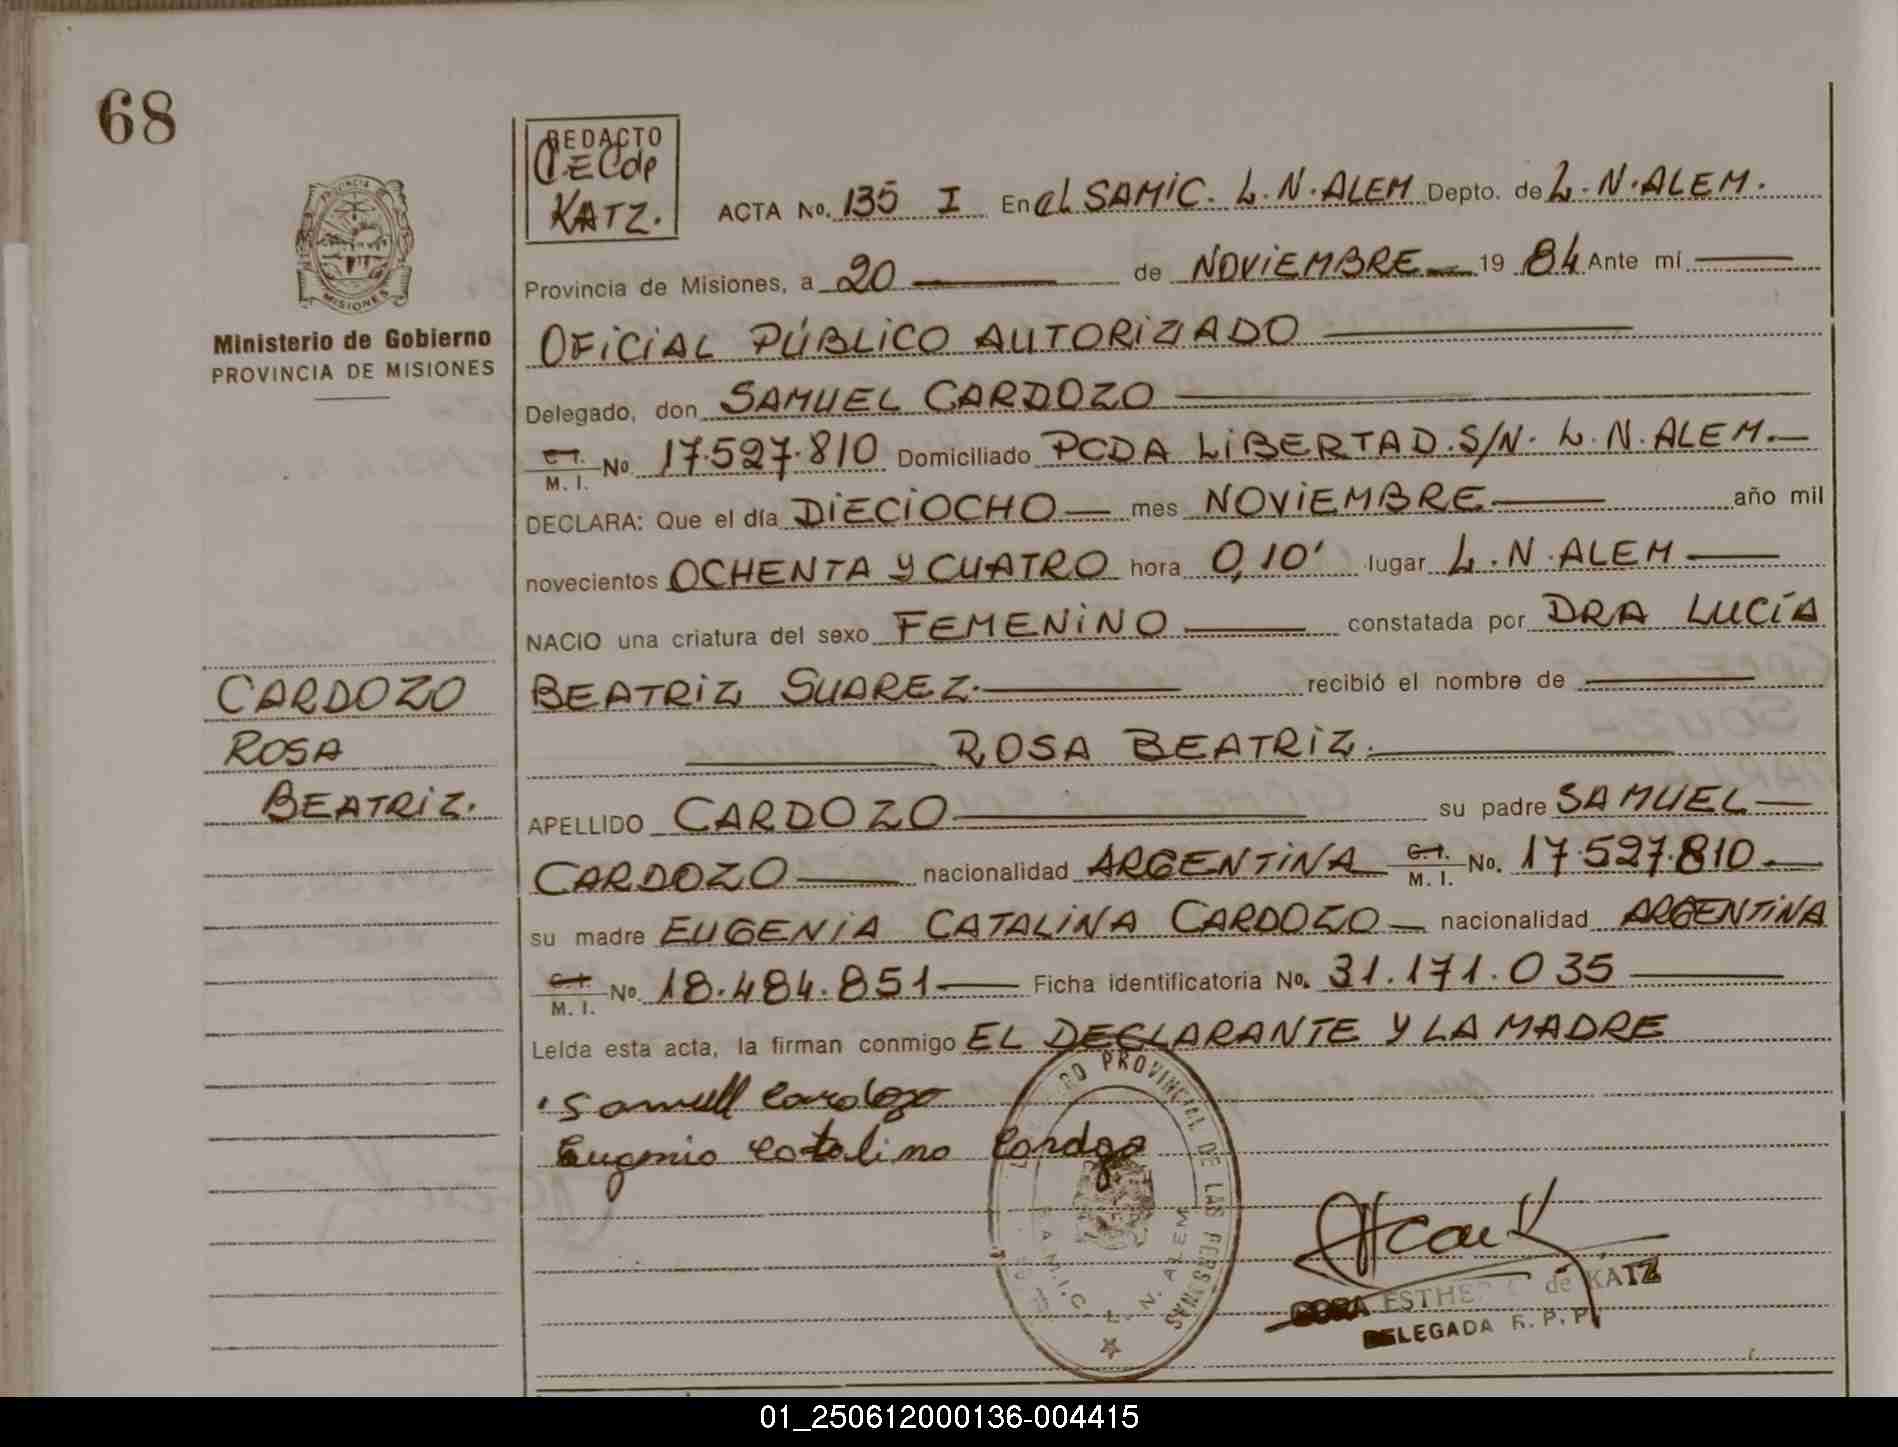 68
REDACTO
CECdp
KATZ.
ACTA No. 135 I En el SAMIC. L.N.ALEM Depto. de L.N.ALEM.
Provincia de Misiones, a 20 de NOVIEMBRE 19 84 Ante mí
PROVINCIA
MISIONES
Ministerio de Gobierno
PROVINCIA DE MISIONES
OFICIAL PÚBLICO AUTORIZADO
Delegado, don SAMUEL CARDOZO
C.I. M. I. No. 17.527.810 Domiciliado PCDA LIBERTAD. S/N. L.N.ALEM.
DECLARA: Que el día DIECIOCHO mes NOVIEMBRE año mil
novecientos OCHENTA Y CUATRO hora 0,10' lugar L.N.ALEM
NACIO una criatura del sexo FEMENINO constatada por DRA LUCÍA
BEATRIZ SUAREZ. recibió el nombre de
ROSA BEATRIZ.
CARDOZO
ROSA
BEATRIZ.
APELLIDO CARDOZO su padre SAMUEL
CARDOZO nacionalidad ARGENTINA C.I. M. I. No. 17.527.810
su madre EUGENIA CATALINA CARDOZO nacionalidad ARGENTINA
C.I. M. I. No. 18.484.851 Ficha identificatoria No. 31.171.035
Leída esta acta, la firman conmigo EL DECLARANTE Y LA MADRE
Samuell Cardozo
Eugenia Catalina Cardozo
PROVINCIAL DE LAS PERSONAS
S.A.M.I.C. L. N. ALEM
CORA ESTHER C. de KATZ
DELEGADA R. P. P.
01_250612000136-004415